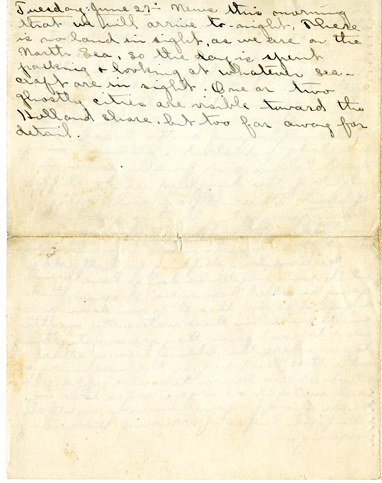 Tuesday: June 27 - News this morning
that we will arrive to-night. There
is no land in sight, as we are on the
North Sea, so the day is spent
packing + looking at whatever sea-
craft are in sight. One or two
ghostly cities are visible toward the
Holland shore, but too far away for
detail.